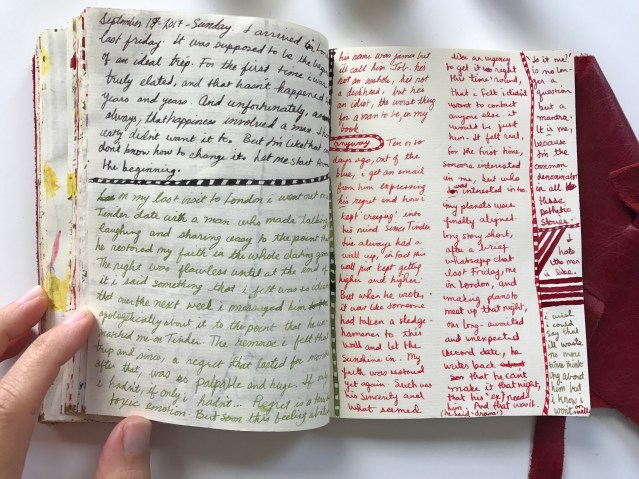 September 17, 2017 - Sunday. I arrived in
last friday. It was supposed to be the
of an ideal trip. For the first time i was
truly elated, and that hasn't happened in
years and years. And unfortunately, as
always, that happiness involved a man. I
didn't want it to. But i'm like that &
don't know how to change it. Let me start from
the beginning.
on my last visit to London i went out on a
Tinder date with a man who made talking
laughing and sharing easy to the point that
he restored my faith in the whole dating game.
The night was flawless until at the end of
it i said something that i felt was so
that over the next week i messaged him
apologetically about it to the point that he
me on Tinder. The remorse i felt that
trip and since, a regret that lasted for months
after that, was so palpable and huge. If
i hadn't, if only i hadn't... Regret is a
toxic emotion. But soon this feeling
his name was James but
i'll call him Job. he's
not an asshole, he's not
a dickhead, but he's
an idiot, the worst thing
for a man to be, in my
book.
anyway Ten or so
days ago, out of the
blue, i get an email
from him expressing
his regret and how i
kept 'creeping' into
his mind. Since Tinder
i'd always had a
wall up, in fact this
wall just kept getting
higher and higher.
But when he wrote,
it was like someone
had taken a sledge-
hammer to this
wall and let the
sunshine in. My
faith was restored
yet again. Such was
his sincerity and
what seemed
like an urgency
to get it so right
this time round,
that i felt i didn't
want to contact
anyone else. it
would be just
him. It felt real,
for the first time,
someone interested
in me, but who
i was interested in too
my planets were
finally aligned.
long story short,
after a brief
whatsapp chat
last Friday, me
in London, and
making plans to
meet up that night,
our long-awaited
and unexpected
second date, he
writes back
that he can't
make it that night,
that his 'ex' needs
him. And that was it.
(he said 'drama')
so it me?
is no lon-
ger a
question
but a
mantra.
It is me,
because
i'm the
common
denominator
in all
these
pathetic
stories.
↓
hate
this man
i wish
i could
say that
i'll waste
no more
time think
ing about
him but
i know i
won't